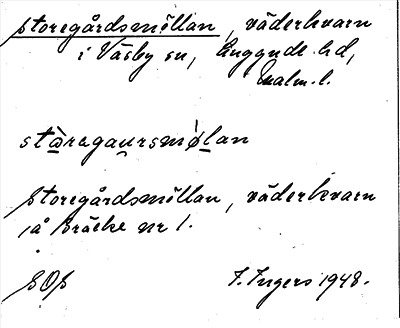 Storegårdsmöllan, väderkvarn
i Väsby sn, Luggude hd,
Malm. l.
stòregaursmø̀lan
Storegårdsmöllan, väderkvarn
på Bräcke nr 1.
SOS I. Ingers 1948.